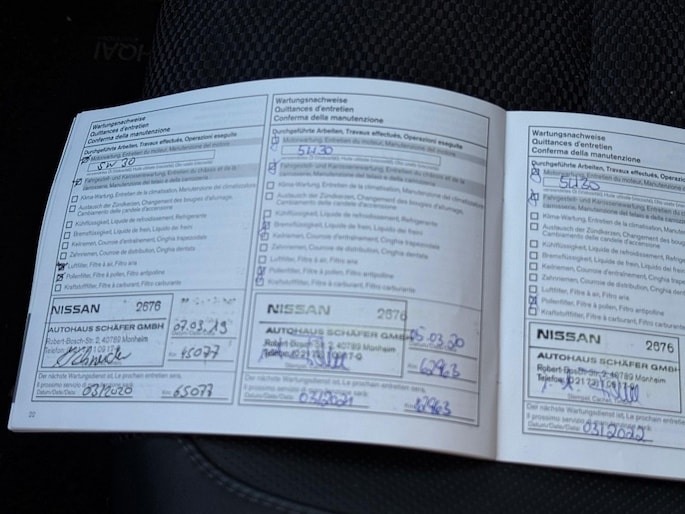 Wartungsnachweise
Quittances d'entretien
Conferma della manutenzione
Durchgeführte Arbeiten, Travaux effectués, Operazioni eseguite
Motorwartung, Entretien du moteur, Manutenzione del motore
5W30
Fahrgestell- und Karosseriewartung, Entretien du châssis et de la
carrosserie, Manutenzione del telaio e della carrozzeria
Klima-Wartung, Entretien de la climatisation, Manutenzione del climatizzatore
Austausch der Zündkerzen, Changement des bougies d'allumage,
Cambiamento delle candele d'accensione
Kühlflüssigkeit, Liquide de refroidissement, Refrigerante
Bremsflüssigkeit, Liquide de frein, Liquido freni
Keilriemen, Courroie d'entraînement, Cinghia trapezoidale
Zahnriemen, Courroie de distribution, Cinghia dentata
Luftfilter, Filtre à air, Filtro aria
Pollenfilter, Filtre à pollen, Filtro antipolline
Kraftstofffilter, Filtre à carburant, Filtro carburante
NISSAN 2676
AUTOHAUS SCHÄFER GMBH
Robert-Bosch-Str. 2, 40789 Monheim
07.03.19
Km 45077
Der nächste Wartungsdienst ist, Le prochain entretien sera,
Il prossimo servizio di manutenzione sarà:
Datum/Date/Data: 03/2020 Km 65077
22
Wartungsnachweise
Quittances d'entretien
Conferma della manutenzione
Durchgeführte Arbeiten, Travaux effectués, Operazioni eseguite
Motorwartung, Entretien du moteur, Manutenzione del motore
5W30
Fahrgestell- und Karosseriewartung, Entretien du châssis et de la
carrosserie, Manutenzione del telaio e della carrozzeria
Klima-Wartung, Entretien de la climatisation, Manutenzione del climatizzatore
Austausch der Zündkerzen, Changement des bougies d'allumage,
Cambiamento delle candele d'accensione
Kühlflüssigkeit, Liquide de refroidissement, Refrigerante
Bremsflüssigkeit, Liquide de frein, Liquido freni
Keilriemen, Courroie d'entraînement, Cinghia trapezoidale
Zahnriemen, Courroie de distribution, Cinghia dentata
Luftfilter, Filtre à air, Filtro aria
Pollenfilter, Filtre à pollen, Filtro antipolline
Kraftstofffilter, Filtre à carburant, Filtro carburante
NISSAN 2676
AUTOHAUS SCHÄFER GMBH
Robert-Bosch-Str. 2, 40789 Monheim
05.03.20
Km 62963
Der nächste Wartungsdienst ist, Le prochain entretien sera,
Il prossimo servizio di manutenzione sarà:
Datum/Date/Data: 03/2021 Km 82963
Wartungsnachweise
Quittances d'entretien
Conferma della manutenzione
Durchgeführte Arbeiten, Travaux effectués, Operazioni
Motorwartung, Entretien du moteur, Manutenzione
5W30
Fahrgestell- und Karosseriewartung, Entretien du
carrosserie, Manutenzione del telaio e della
Klima-Wartung, Entretien de la climatisation,
Austausch der Zündkerzen, Changement des
Cambiamento delle candele d'accensione
Kühlflüssigkeit, Liquide de refroidissement,
Bremsflüssigkeit, Liquide de frein,
Keilriemen, Courroie d'entraînement,
Zahnriemen, Courroie de distribution,
Luftfilter, Filtre à air, Filtro aria
Pollenfilter, Filtre à pollen, Filtro
Kraftstofffilter, Filtre à carburant, Filtro
NISSAN 2676
AUTOHAUS SCHÄFER GMBH
Robert-Bosch-Str. 2, 40789 Monheim
Stempel, Cachet,
Der nächste Wartungsdienst ist, Le prochain
Il prossimo servizio di manutenzione sarà:
Datum/Date/Data: 03/2022